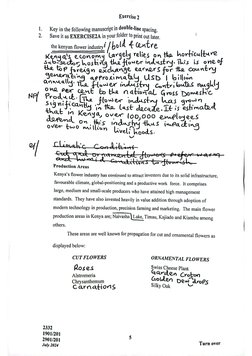 Exercise 2
1. Key in the following manuscript in double-line spacing.
2. Save it as EXERCISE2A in your folder to print out later.
the kenyan flower industry //bold & centre
Kenya's economy largely relies on the horticulture
subsector, hosting the flower industry. This is one of
the top foreign exchange earners for the country
generating approximately USD 1 billion
annually. The flower industry contributes roughly
one per cent to the national Gross Domestic
NP/ Product. The flower industry has grown
significantly in the last decade. It is estimated
that in Kenya, over 100,000 employees
depend on this industry thus impacting
over two million livelihoods.
Climatic Conditions
Cut and ornamental flowers prefer warm
and humid conditions to flourish
Production Areas
Kenya's flower industry has continued to attract investors due to its solid infrastructure,
favourable climate, global-positioning and a productive work force. It comprises
large, medium and small-scale producers who have attained high management
standards. They have also invested heavily in value addition through adoption of
modern technology in production, precision farming and marketing. The main flower
production areas in Kenya are; Naivasha Lake, Timau, Kajiado and Kiambu among
others.
These areas are well known for propagation for cut and ornamental flowers as
displayed below:
CUT FLOWERS ORNAMENTAL FLOWERS
Roses Swiss Cheese Plant
Alstroemeria Garden Croton
Chrysanthemum Golden Dew drops
Carnations Silky Oak
2332
1901/201
2901/201
July 2024
5
Turn over